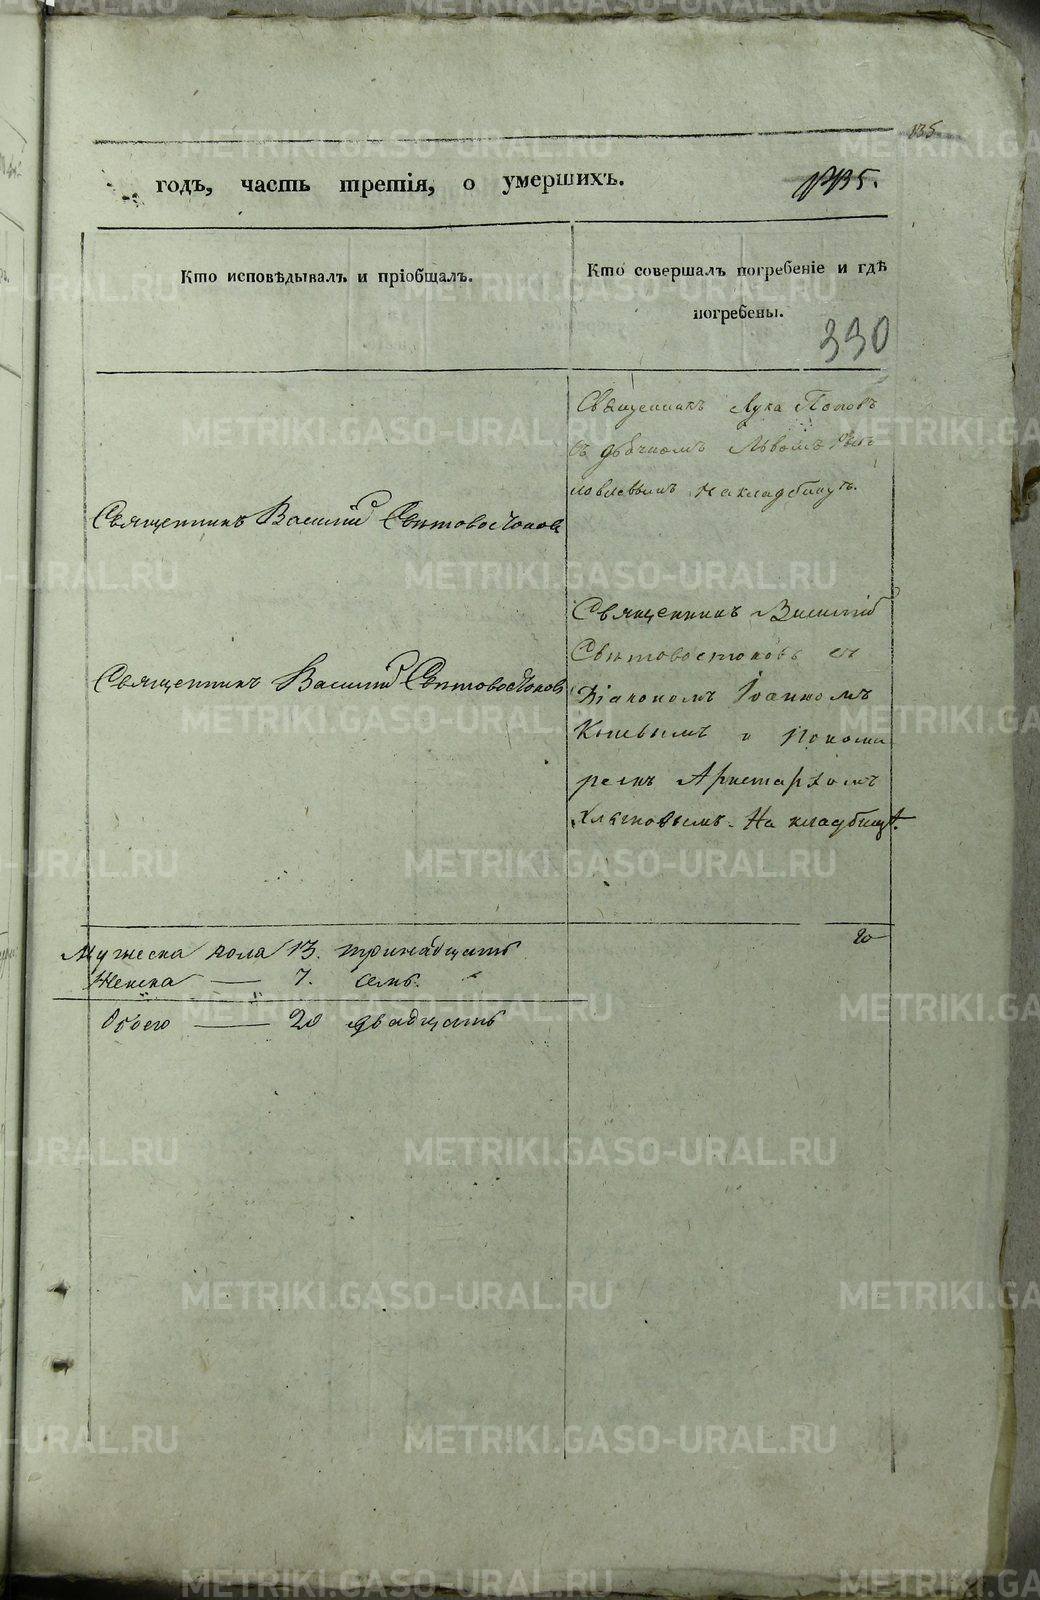 135
годъ, часть третія, о умершихъ.
135.
Кто исповѣдывалъ и пріобщалъ.
Кто совершалъ погребеніе и гдѣ
погребены.
330
Священникъ Лука Поповъ
съ дьячкомъ Львомъ
На кладбищѣ.
Священникъ Василій Свѣтовостоковъ
Священникъ Василій
Свѣтовостоковъ съ
Діакономъ Іоанномъ
и Понома
ремъ Аристархомъ
На кладбищѣ.
Священникъ Василій Свѣтовостоковъ
20
Мужеска пола 13. тринадцать
Женска — 7. семь.
Обоего — 20 двадцать
METRIKI.GASO-URAL.RU